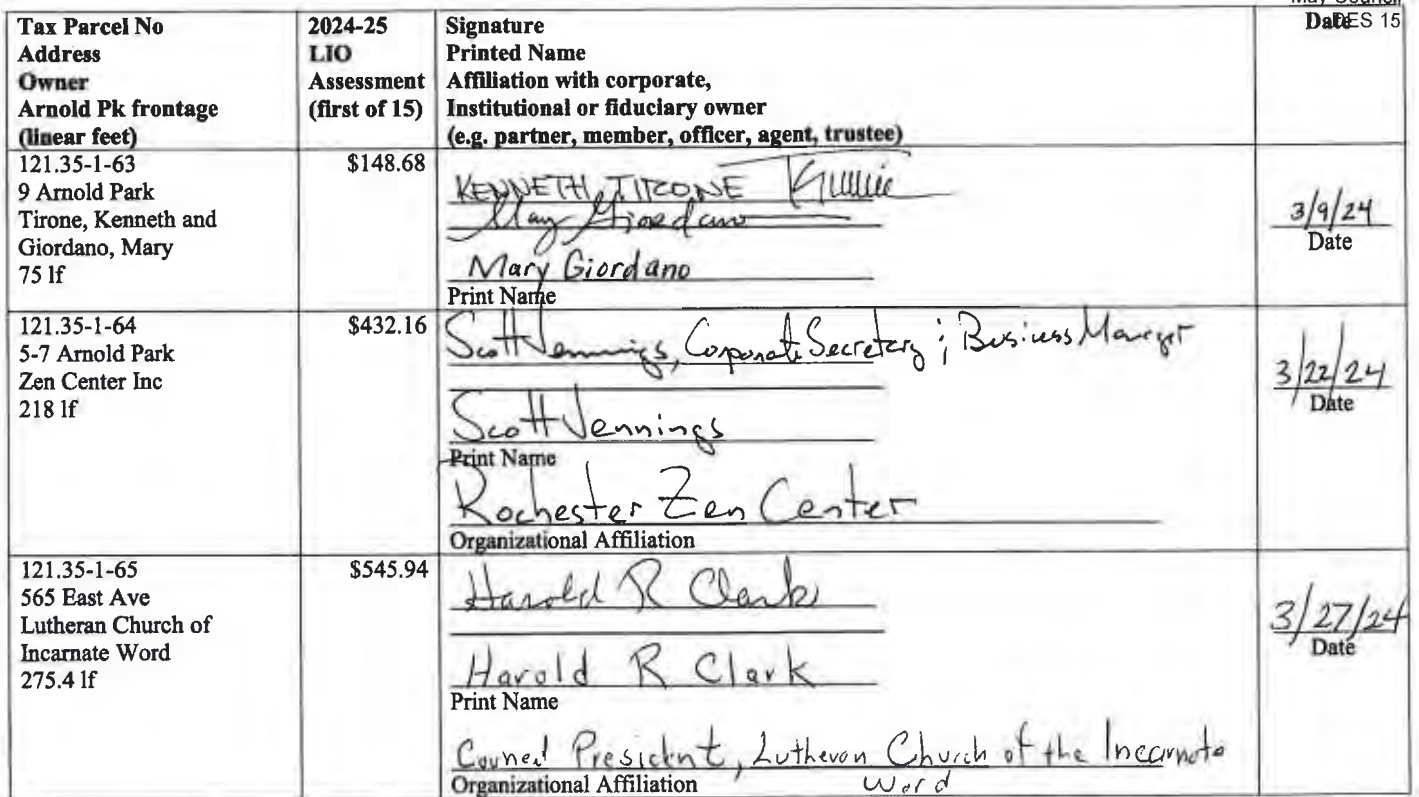 May Council
DES 15
Tax Parcel No
Address
Owner
Arnold Pk frontage
(linear feet)
2024-25
LIO
Assessment
(first of 15)
Signature
Printed Name
Affiliation with corporate,
Institutional or fiduciary owner
(e.g. partner, member, officer, agent, trustee)
Date
121.35-1-63
9 Arnold Park
Tirone, Kenneth and
Giordano, Mary
75 lf
$148.68
KENNETH TIRONE
Mary Giordano
Mary Giordano
Print Name
3/9/24
Date
121.35-1-64
5-7 Arnold Park
Zen Center Inc
218 lf
$432.16
Scott Jennings, Corporate Secretary; Business Manager
Scott Jennings
Print Name
Rochester Zen Center
Organizational Affiliation
3/22/24
Date
121.35-1-65
565 East Ave
Lutheran Church of
Incarnate Word
275.4 lf
$545.94
Harold R Clark
Harold R Clark
Print Name
Council President, Lutheran Church of the Incarnate
Word
Organizational Affiliation
3/27/24
Date